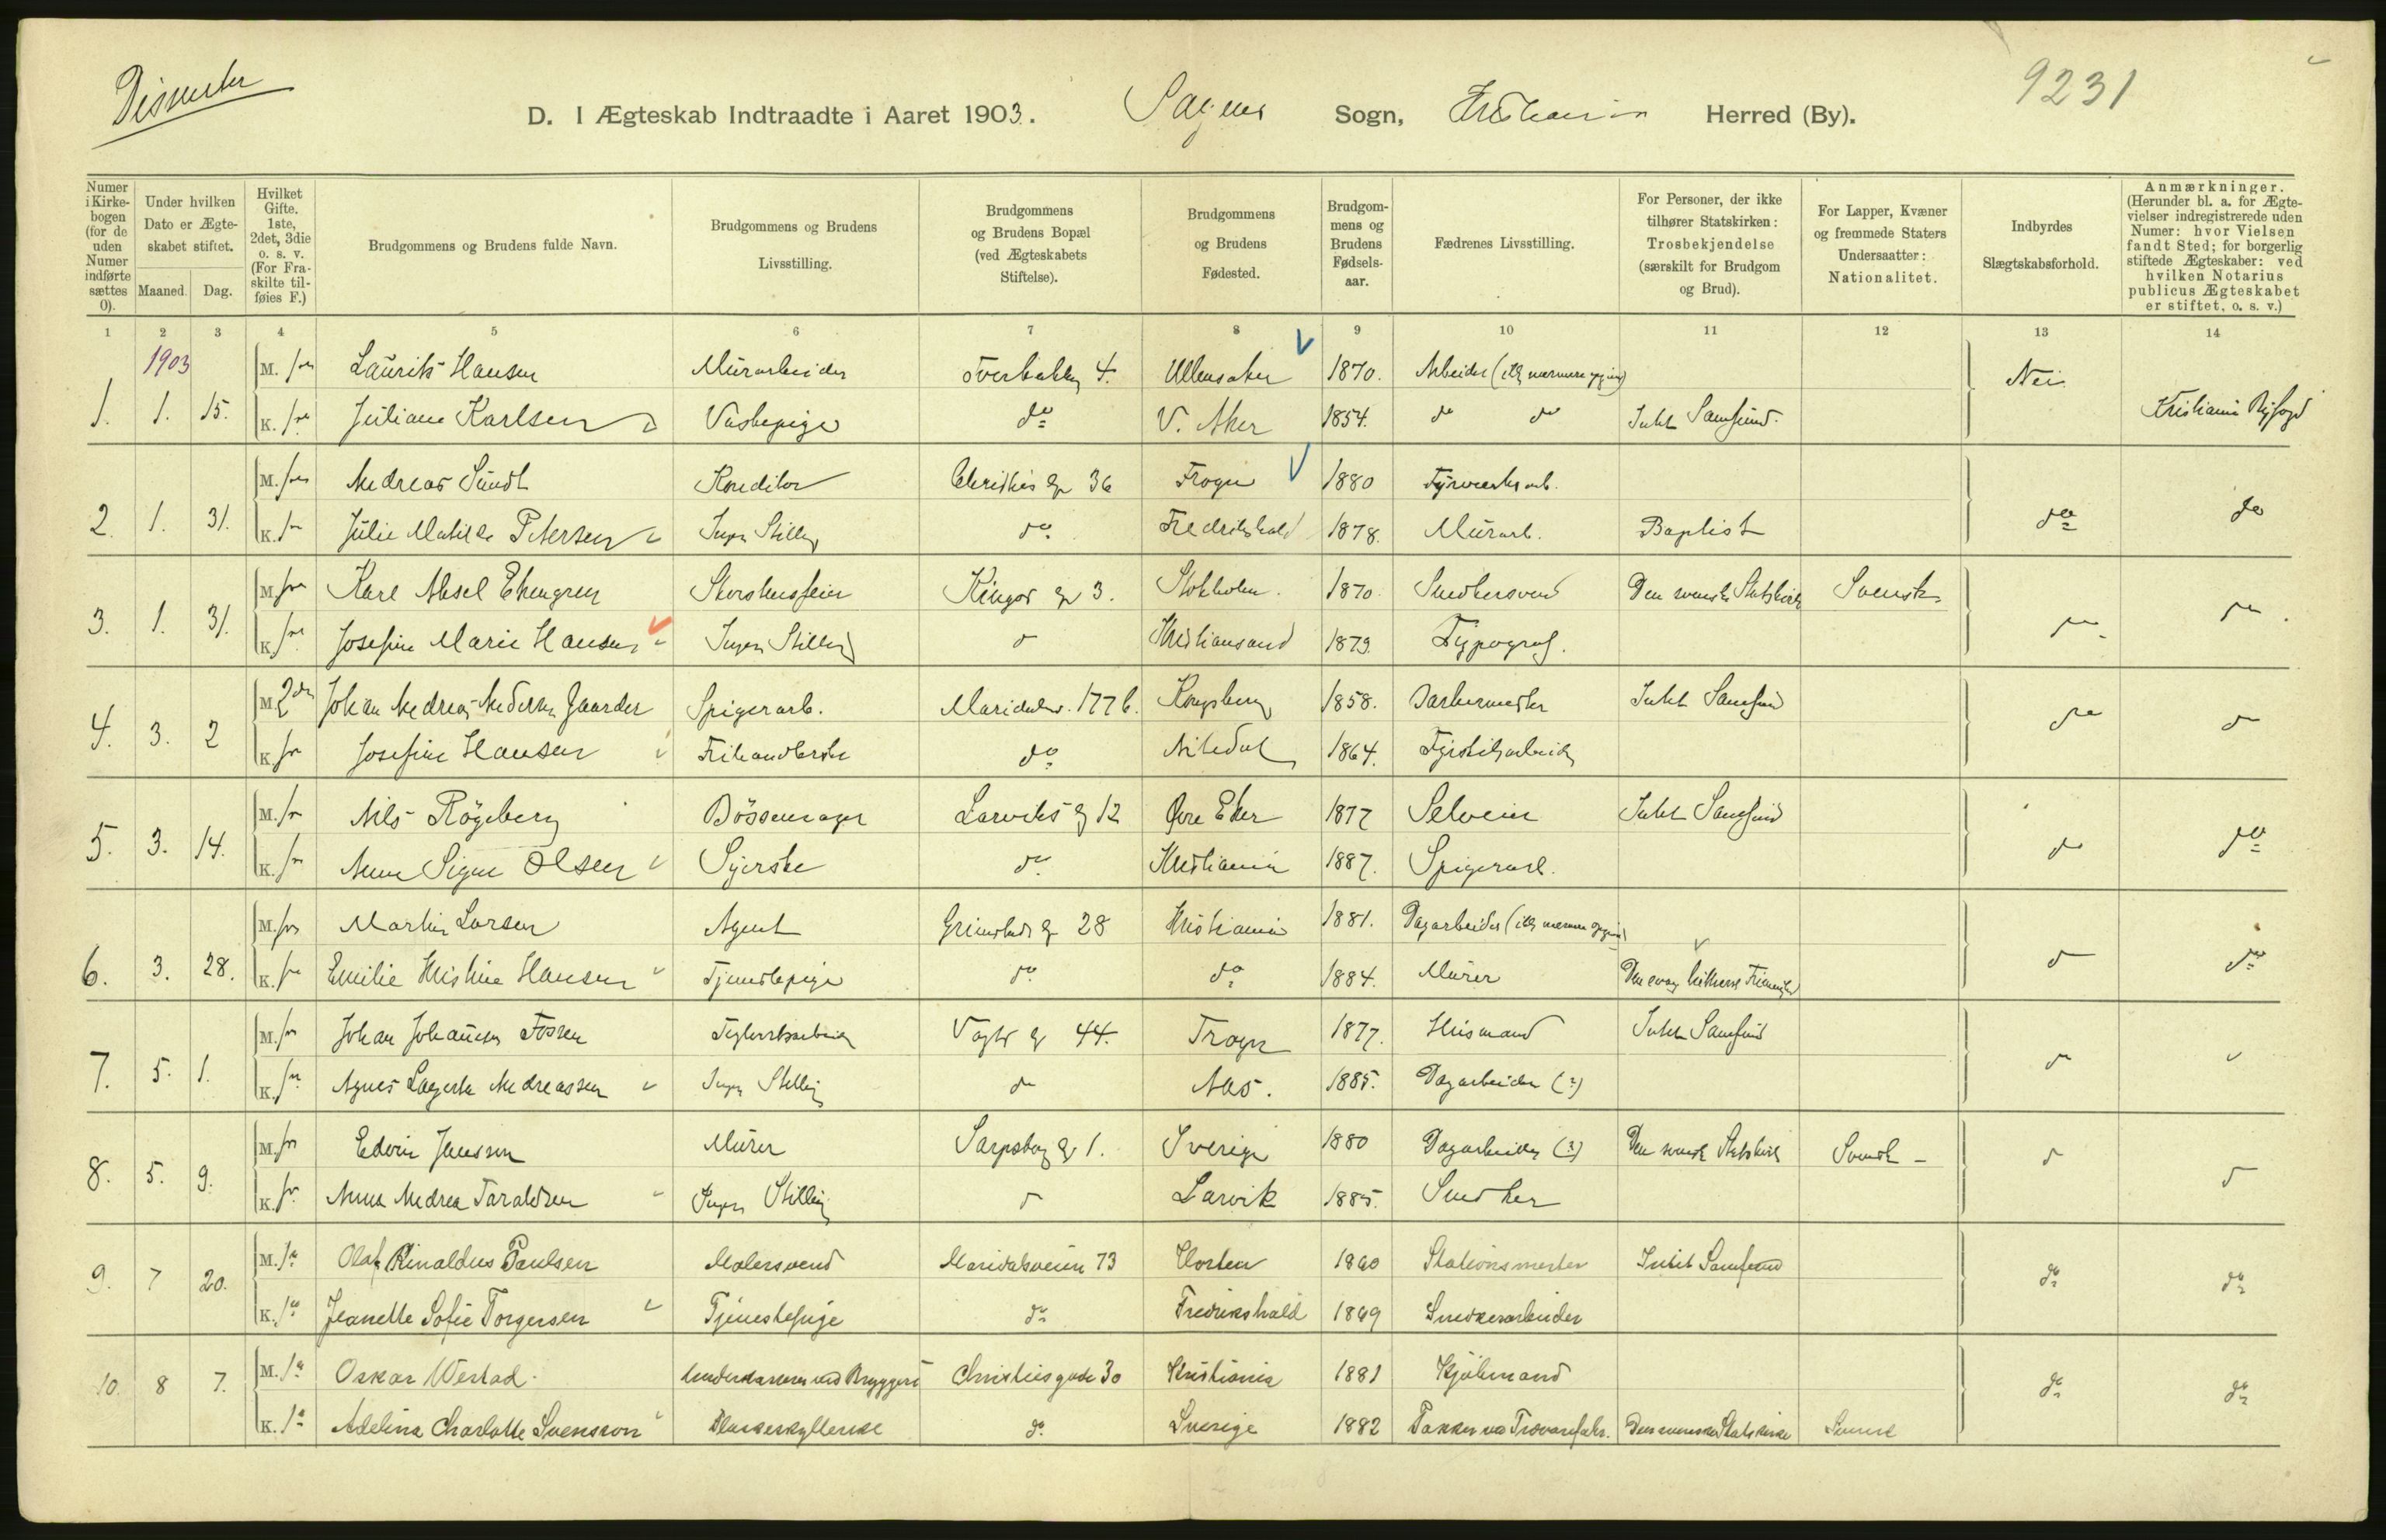 Dissenter
9231
D. I Ægteskab Indtraadte i Aaret 1903. Sagenes Sogn, Kristiania Herred (By).
Numer i Kirkebogen (for de uden Numer indførte sættes 0).
Under hvilken Dato er Ægteskabet stiftet.
Maaned. Dag.
Hvilket Gifte. 1ste, 2det, 3die o. s. v. (For Fraskilte tilføies F.)
Brudgommens og Brudens fulde Navn.
Brudgommens og Brudens Livsstilling.
Brudgommens og Brudens Bopæl (ved Ægteskabets Stiftelse).
Brudgommens og Brudens Fødested.
Brudgommens og Brudens Fødselsaar.
Fædrenes Livsstilling.
For Personer, der ikke tilhører Statskirken: Trosbekjendelse (særskilt for Brudgom og Brud).
For Lapper, Kvæner og fremmede Staters Undersaatter: Nationalitet.
Indbyrdes Slægtskabsforhold.
Anmærkninger. (Herunder bl. a. for Ægtevielser indregistrerede uden Numer: hvor Vielsen fandt Sted; for borgerlig stiftede Ægteskaber: ved hvilken Notarius publicus Ægteskabet er stiftet, o. s. v.)
1 2 3 4 5 6 7 8 9 10 11 12 13 14
1903
M. Laurits Hansen Murarbeider 4. Ullensaker 1870. Arbeider Nei
1. 1. 15. K. Juliane Karlsen Vaskepige do V. Aker 1854. do do Intet Samfund. Kristiania Byfogd
M. Andreas Sundt Konditor Christies g 36 Frogn 1880 Fyrværksarb.
2. 1. 31. K. Julie Matilde Petersen Ingen Stilling do Fredrikshald 1878. Murarb. Baptist do do
M. Karl Aksel Ekengren Skorstensfeier Ringer g 3. Stokholm. 1870 Snedkersvend Den svenske Statskirke Svensk
3. 1. 31. K. Josefine Marie Hansen Ingen Stilling do Kristiansand 1879. Typograf. do do
M. 2den Johan Andreas Andersen Gaarder Spigerarb. Maridalsv. 177 b. Kongsberg 1858. Intet Samfund
4. 3. 2 K. Josefine Hansen Frihandlerske do Nitedal 1864. do do
M. Nils Røgeberg Bøssemager Larviks g 12 Øvre Eker 1877 Selveier Intet Samfund
5. 3. 14. K. Anna Signe Olsen Syerske do Kristiania 1887. Spigerarb. do do
M. Martin Larsen Agent Grimstads g 28 Kristiania 1881. Dagarbeider
6. 3. 28. K. Emilie Kristine Hansen Tjenestepige do do 1884. Murer Den evang lutherske Frimenighed do do
M. Johan Johansen Fossen Teglverksarbeider Vogts g 44. Frogn 1877. Husmand Intet Samfund
7. 5. 1. K. Agnes Lagerta Andreassen Ingen Stilling do Aas. 1885. Dagarbeider (?) do
M. Edvin Jansson Murer Sarpsborg g 1. Sverige 1880 Dagarbeider (?) Den svensk Statskirke Svensk
8. 5. 9. K. Anna Andrea Taraldsen Ingen Stilling do Larvik 1885. Snedker do do
M. 1ste Olaf Rinaldus Paulsen Malersvend Maridalsveien 73 Horten 1860 Stationsmester Intet Samfund
9. 7 20. K. 1ste Jeanette Sofie Torgersen Tjenestepige do Fredrikshald 1869 Snedkerarbeider do do
M. 1ste Oskar Westad. ved Bryggeri Christiesgade 30 Kristiania 1881 Kjølmand
10. 8 7. K. 1ste Adelina Charlotte Svensson Flaskeskyllerske do Sverige 1882 Pakker ved Trævarefabr. Den svenske Statskirke Svensk do do